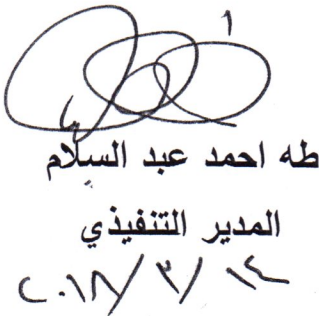 طه احمد عبد السلام
المدير التنفيذي
٢٠١٨/٣/١٤